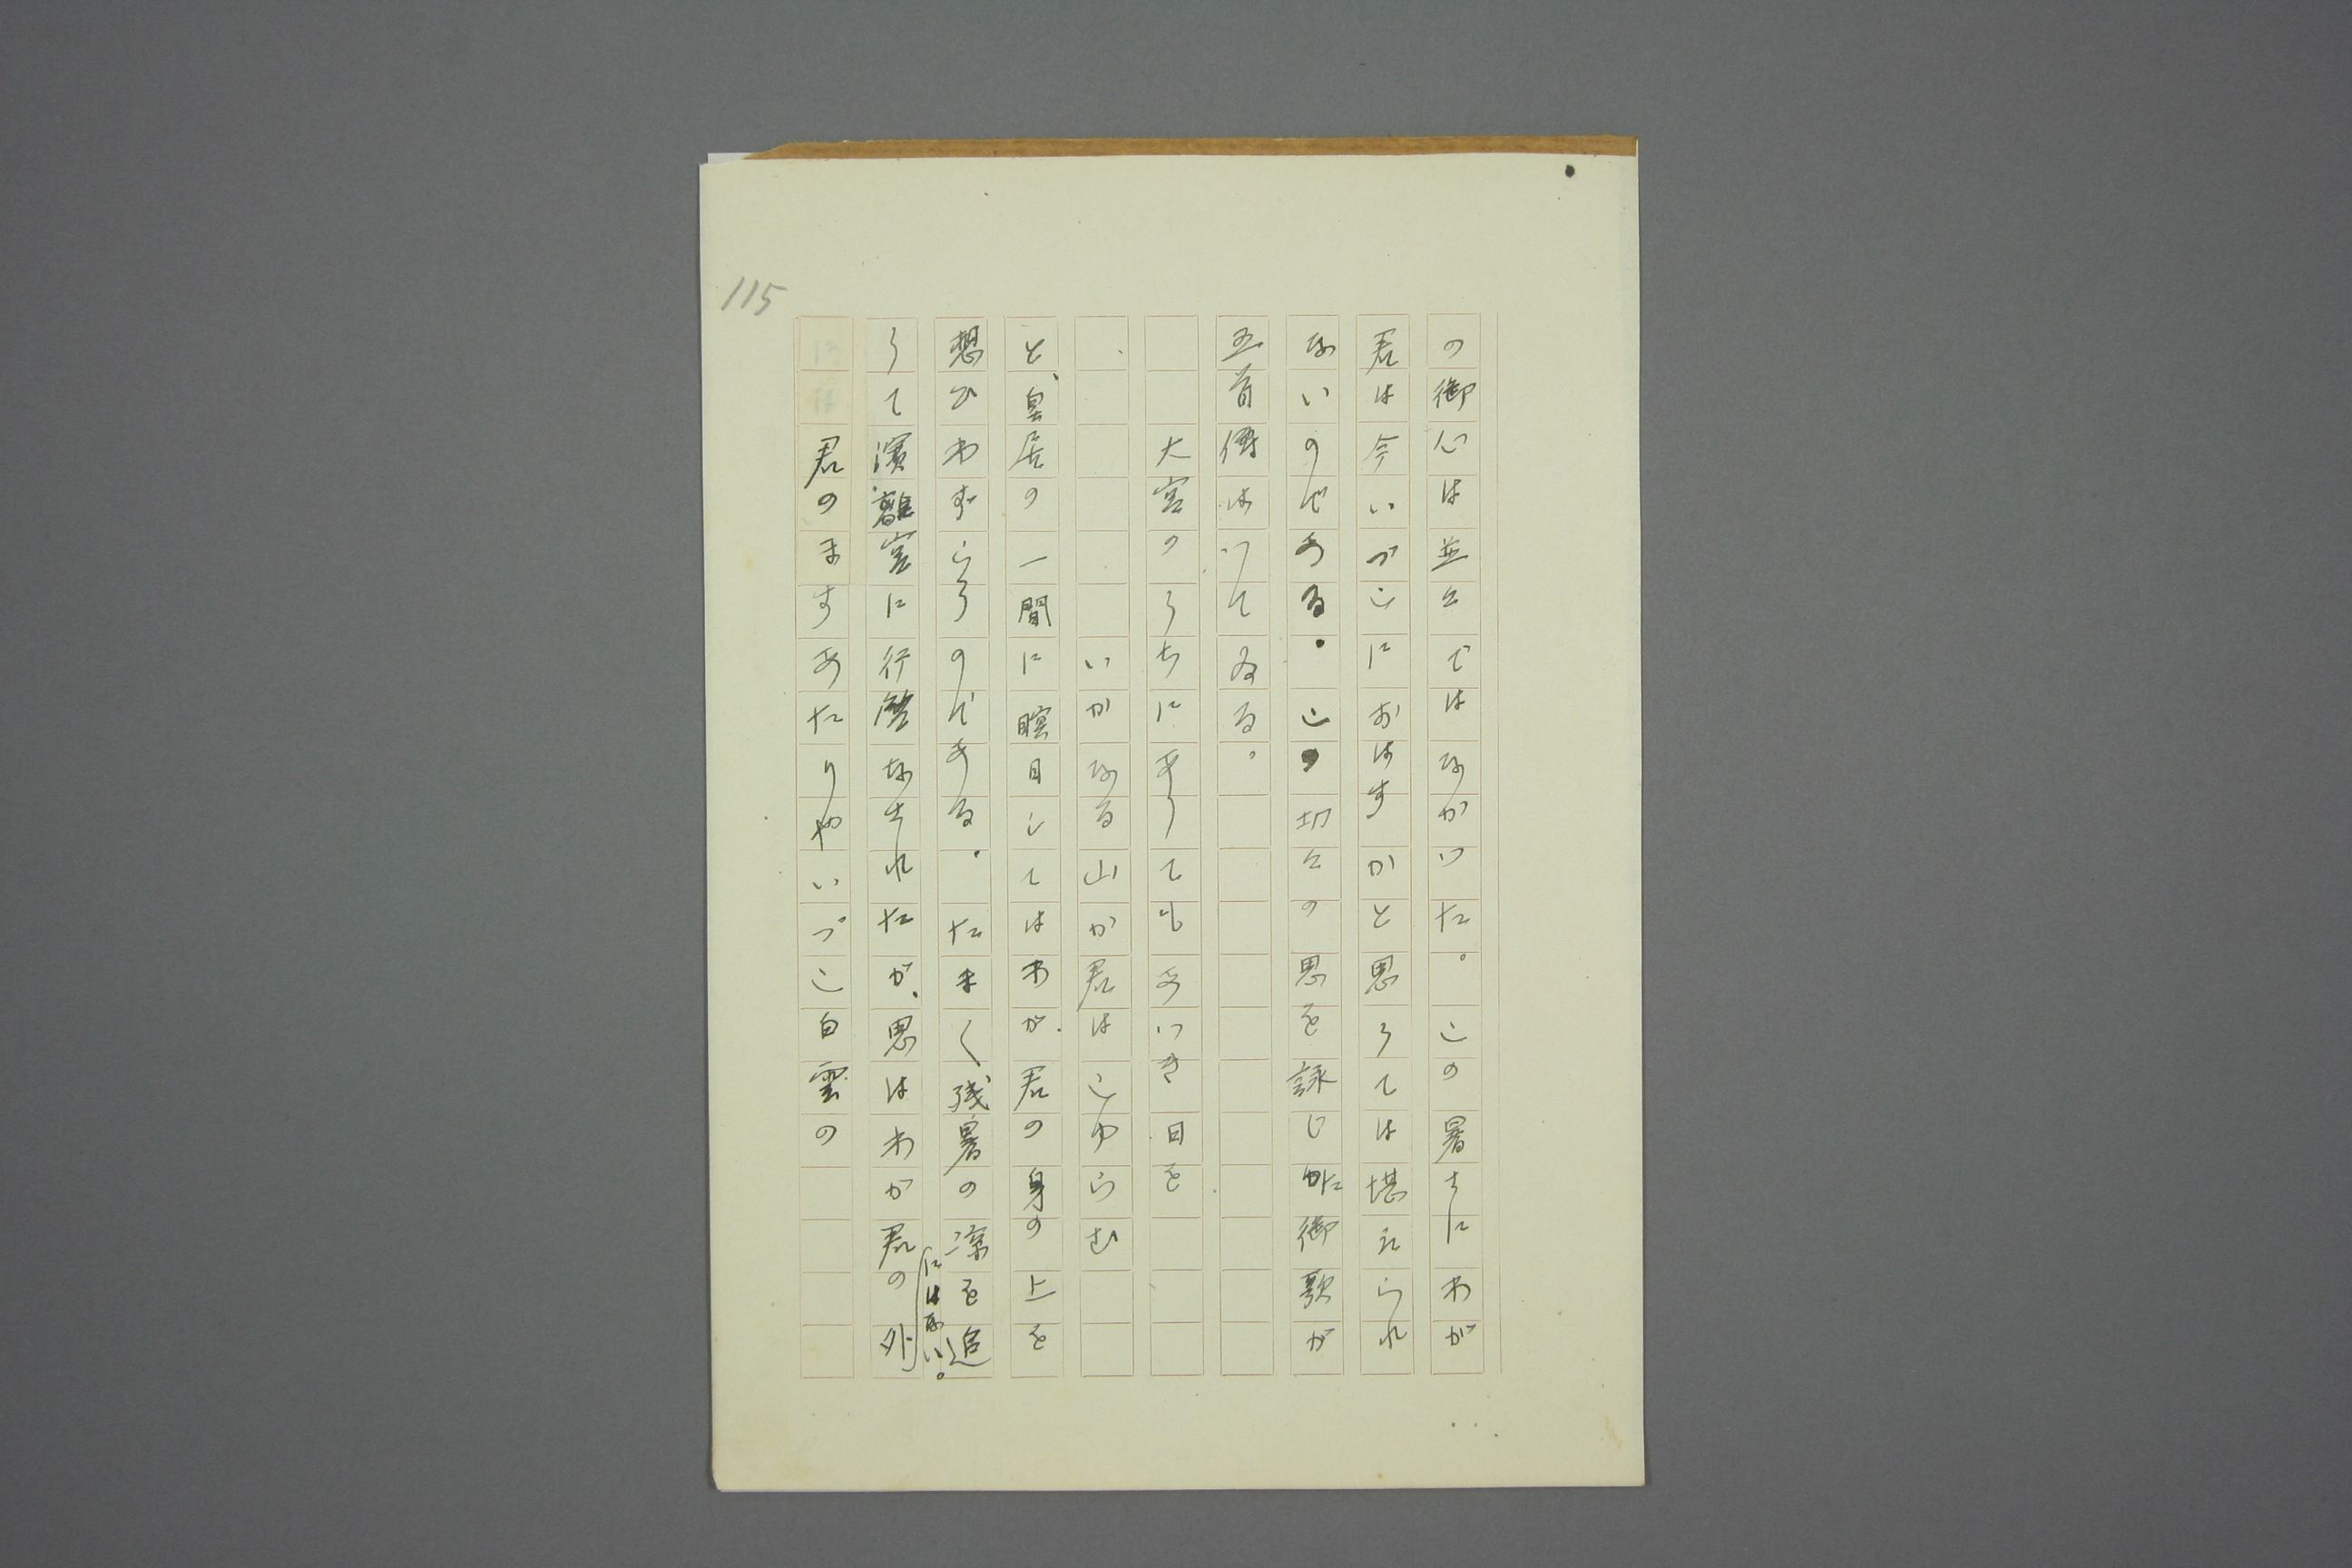 115
の御心は並々ではなかつた。この暑さにわが
君は今いづこにおはすかと思うては堪えられ
ないのである。この切々の思を詠じた御歌が
五首傳はつてゐる。
大宮のうちにありてもあつき日を
いかなる山か君はこゆらむ
と、皇居の一間に瞑目してはわが君の身の上を
想ひわずらうのである。たまく残暑の凉を追
うて濱離宮に行啓なされたが、思はわが君の外
にはない。
君のますあたりやいづこ白雲の